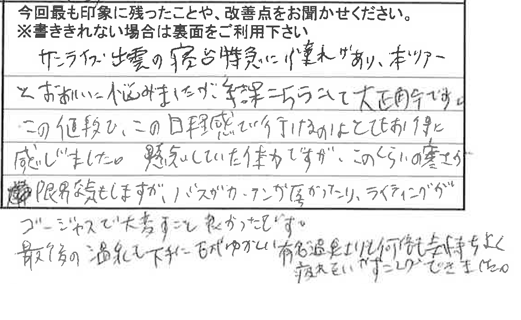 今回最も印象に残ったことや、改善点をお聞かせください。
※書ききれない場合は裏面をご利用下さい
サンライズ出雲の寝台特急に憧れがあり、本ツアー
とおおいに悩みましたが、結果こちらにして大正解です。
この値段で、この日程感で行けるのはとてもお得に
感じました。懸念していた体力ですが、このくらいの寒さが
限界な気もしますが、バスがカーテンが厚かったり、ライティングが
ゴージャスで大変すごく良かったです。
最後の温泉も下手に名がゆかしい有名温泉よりも何倍も気持ちよく
疲れをいやすことができました。